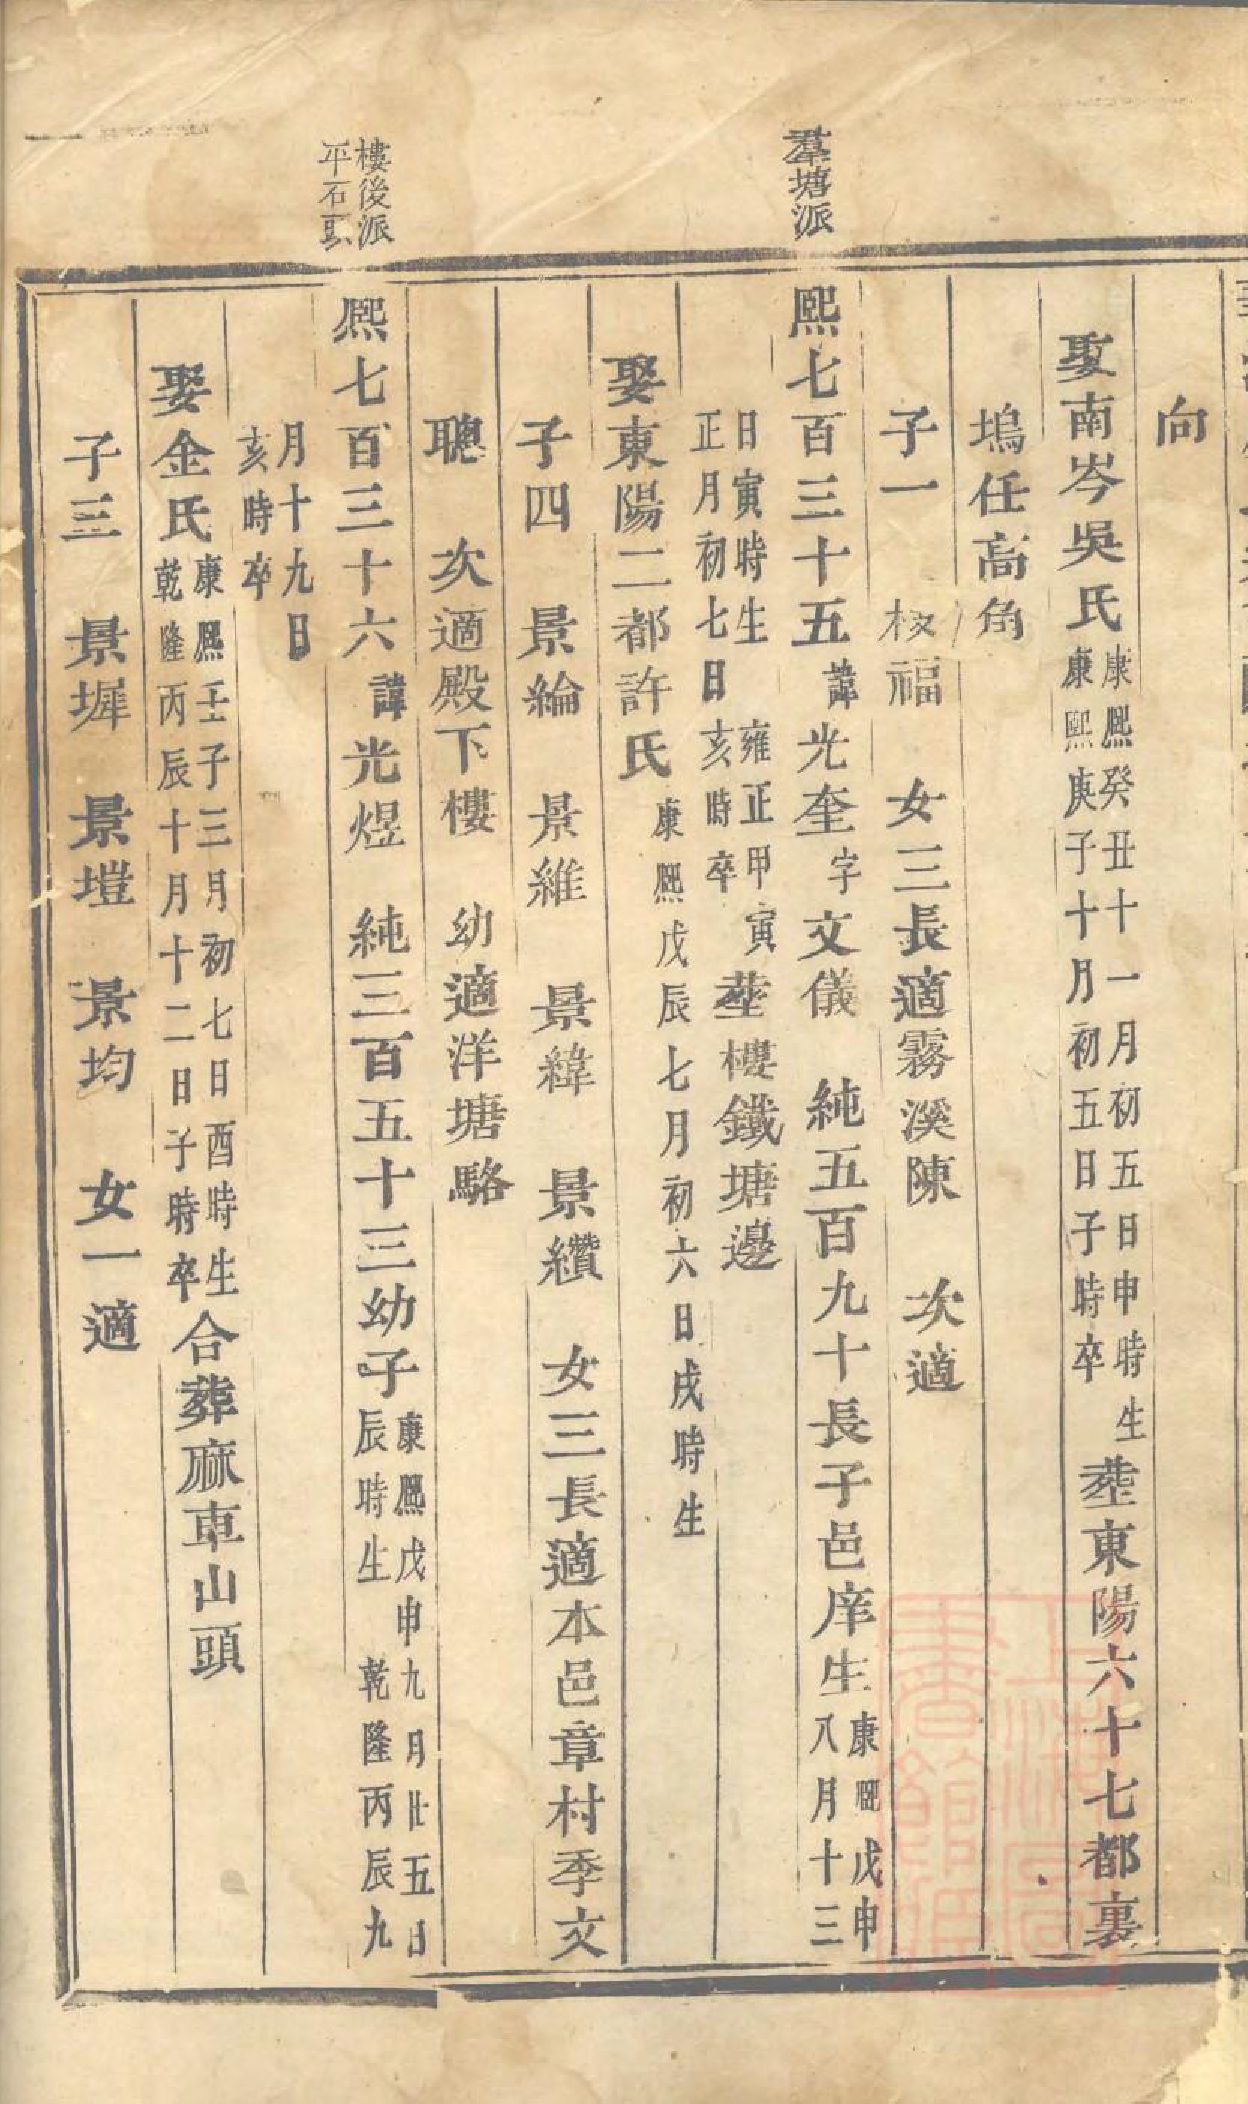 向
娶南岑吳氏康熙癸丑十一月初五日申時生康熙庚子十月初五日子時卒塟東陽六十七都裏
塢任高角
子一 樹福 女三長適霧溪陳 次適
羣塘派
熙七百三十五諱光奎字文儀 純五百九十長子邑庠生康熙戊申八月十三
日寅時生雍正甲寅正月初七日亥時卒塟樓鐵塘邊
娶東陽二都許氏康熙戊辰七月初六日戌時生
子四 景綸 景維 景緯 景纘 女三長適本邑章村季文
聰 次適殿下樓 幼適洋塘駱
樓後派
平石
熙七百三十六諱光煜 純三百五十三幼子康熙戊申九月廿五日辰時生乾隆丙辰九
月十九日亥時卒
娶金氏康熙壬子三月初七日酉時生乾隆丙辰十月十二日子時卒合葬麻車山頭
子三 景墀 景塏 景均 女一適